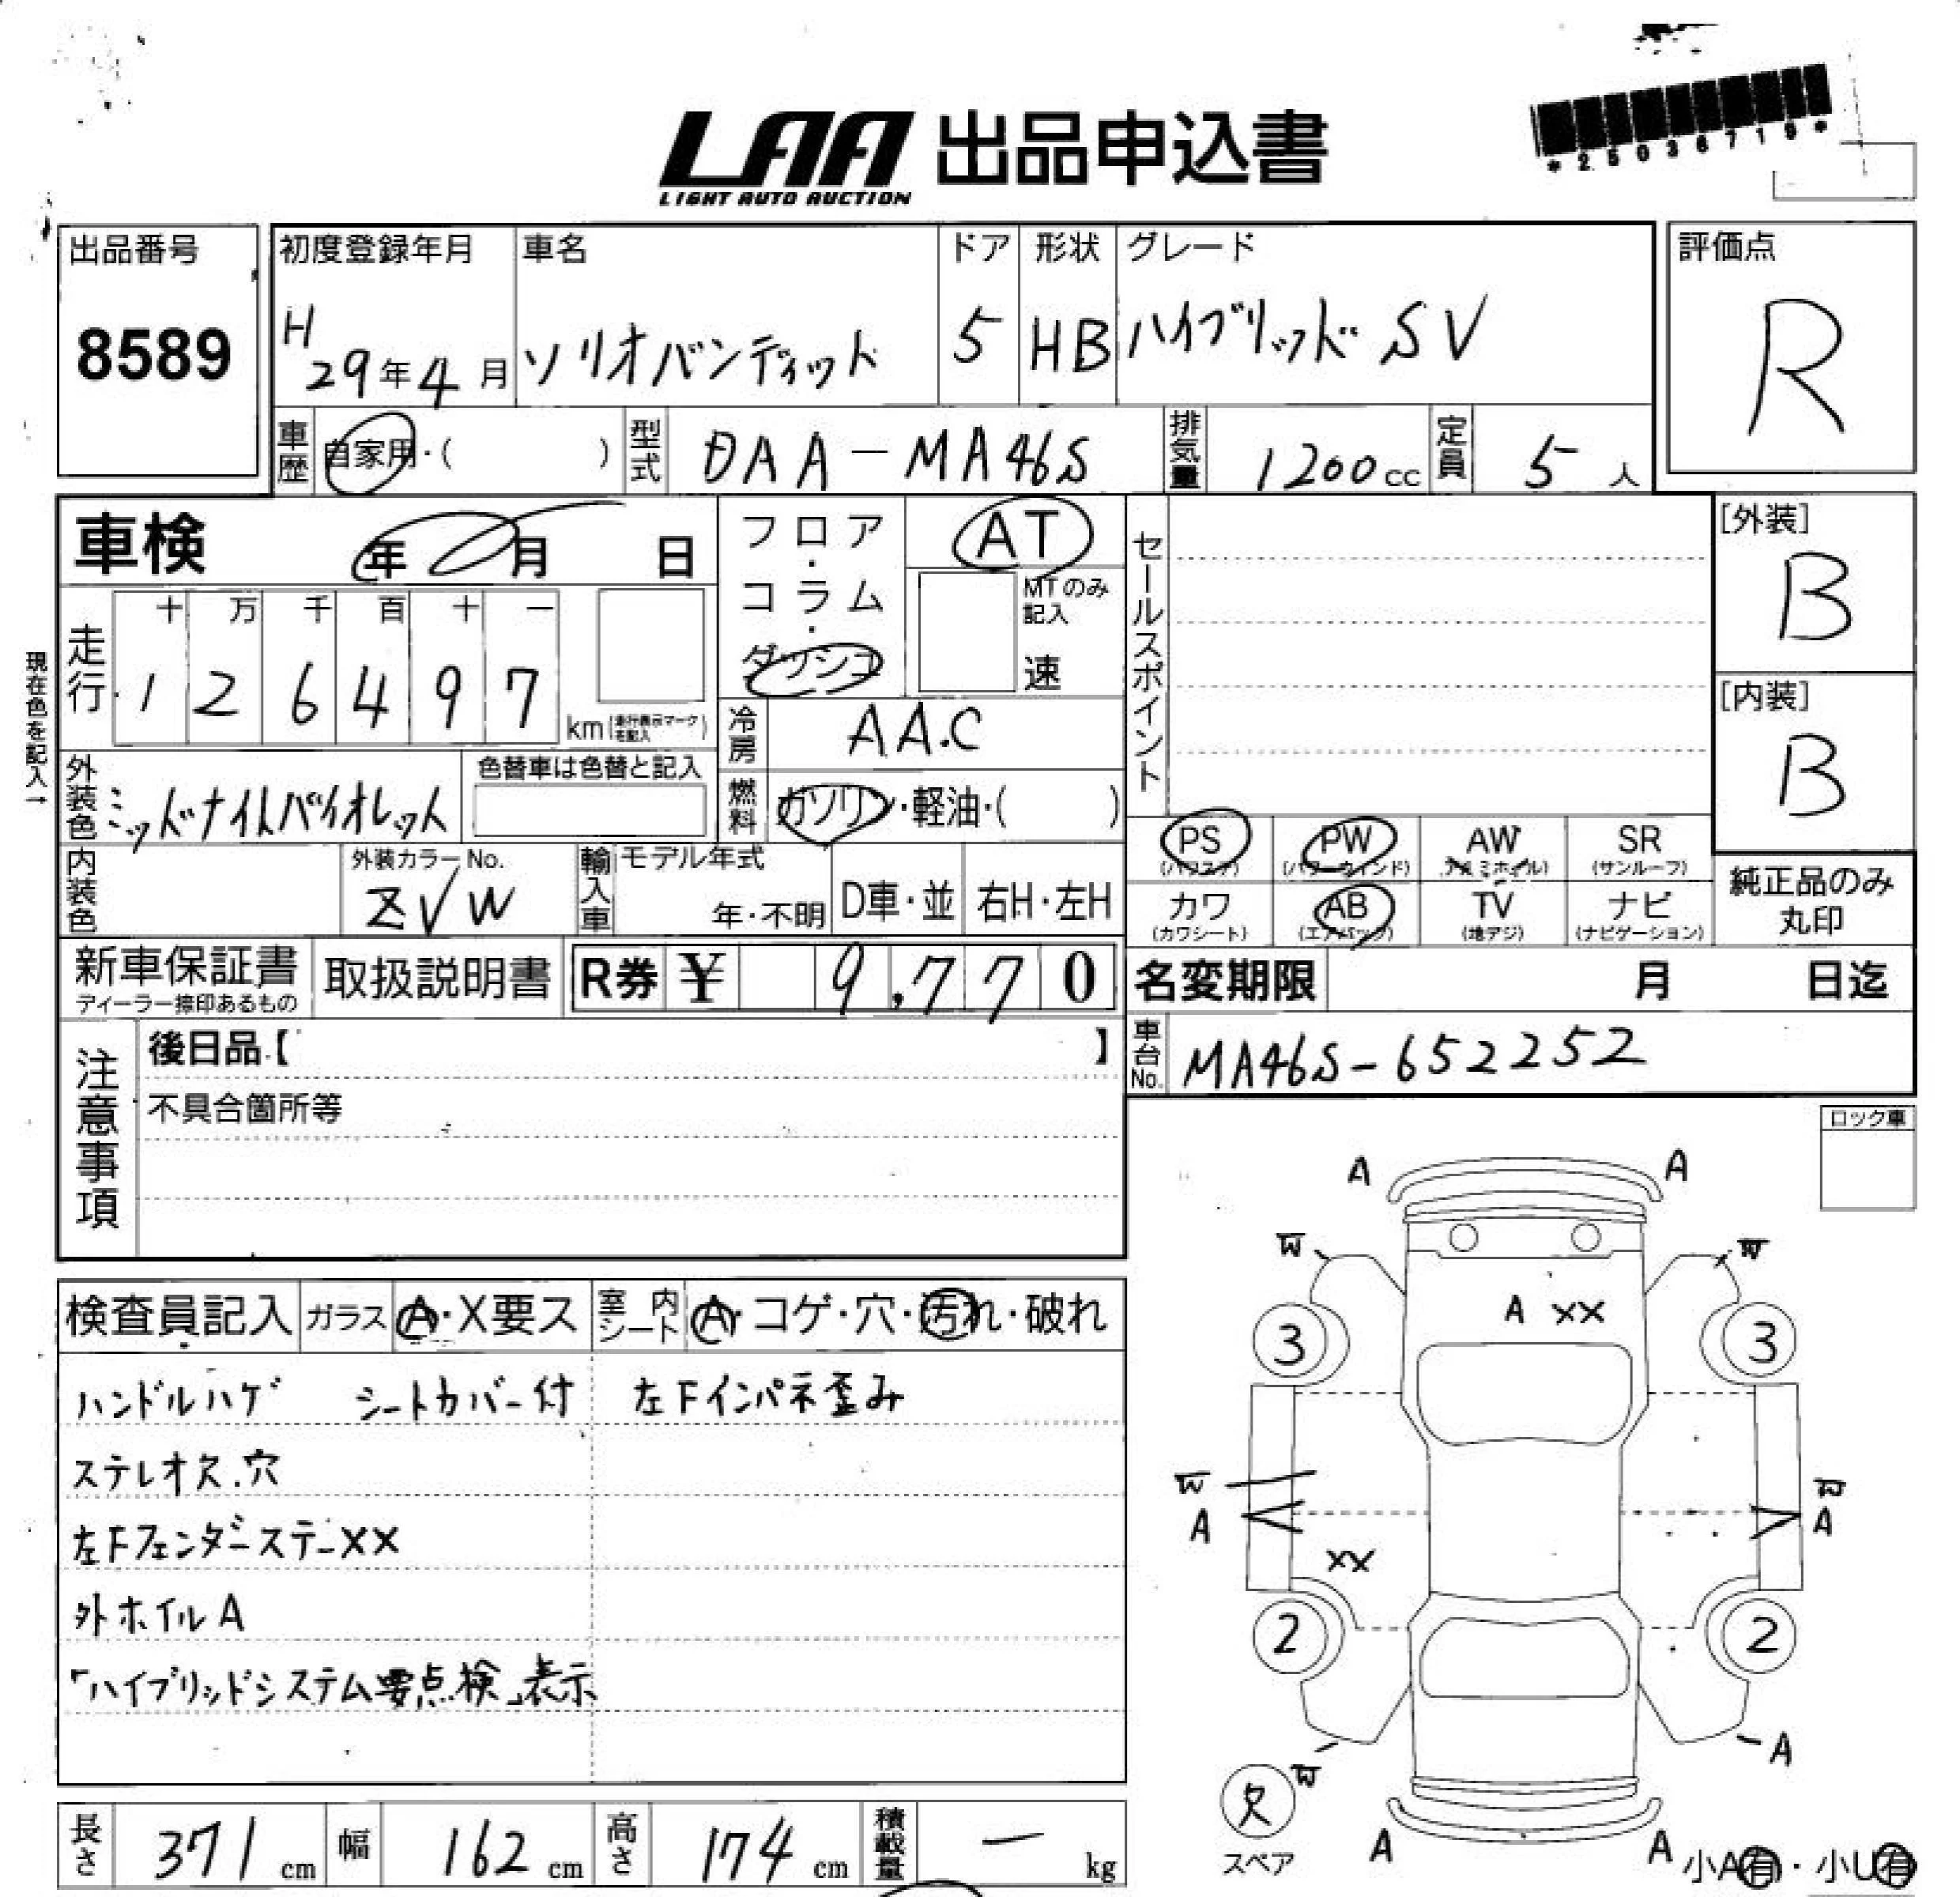 LAA 出品申込書
LIGHT AUTO AUCTION
*25036719*
出品番号
8589
初度登録年月
H29年4月
車名
ソリオバンディット
ドア
5
形状
HB
グレード
ハイブリッド SV
評価点
R
車歴
自家用・( )
型式
DAA-MA46S
排気量
1200cc
定員
5人
車検 年 月 日
フロア・コラム・ダッシュ
AT
MTのみ記入
速
セールスポイント
[外装]
B
[内装]
B
現在色を記入→
走行
十 万 千 百 十 一
1 2 6 4 9 7
km(走行表示マークを記入)
冷房
AA.C
外装色
ミッドナイトバイオレット
色替車は色替と記入
燃料
ガソリン・軽油・( )
内装色
外装カラーNo.
ZVW
輸入車
モデル年式
年・不明
D車・並
右H・左H
PS
(パワステ)
PW
(パワーウィンド)
AW
(アルミホイル)
SR
(サンルーフ)
カワ
(カワシート)
AB
(エアバッグ)
TV
(地デジ)
ナビ
(ナビゲーション)
純正品のみ
丸印
新車保証書
ディーラー捺印あるもの
取扱説明書
R券 ¥ 9,770
名変期限 月 日迄
車台No.
MA46S-652252
注意事項
後日品【 】
不具合箇所等
ロック車
検査員記入
ガラス
A・X要ス
室内シート
A・コゲ・穴・汚れ・破れ
ハンドルハゲ シートカバー付 左Fインパネ歪み
ステレオ欠.穴
左FフェンダーステーXX
外ホイルA
「ハイブリッドシステム要点検」表示
A A
W W
A XX
3 3
W W
A A
XX
2 2
W A
欠
スペア
A A
小A有・小U有
長さ 371 cm
幅 162 cm
高さ 174 cm
積載量 ー kg